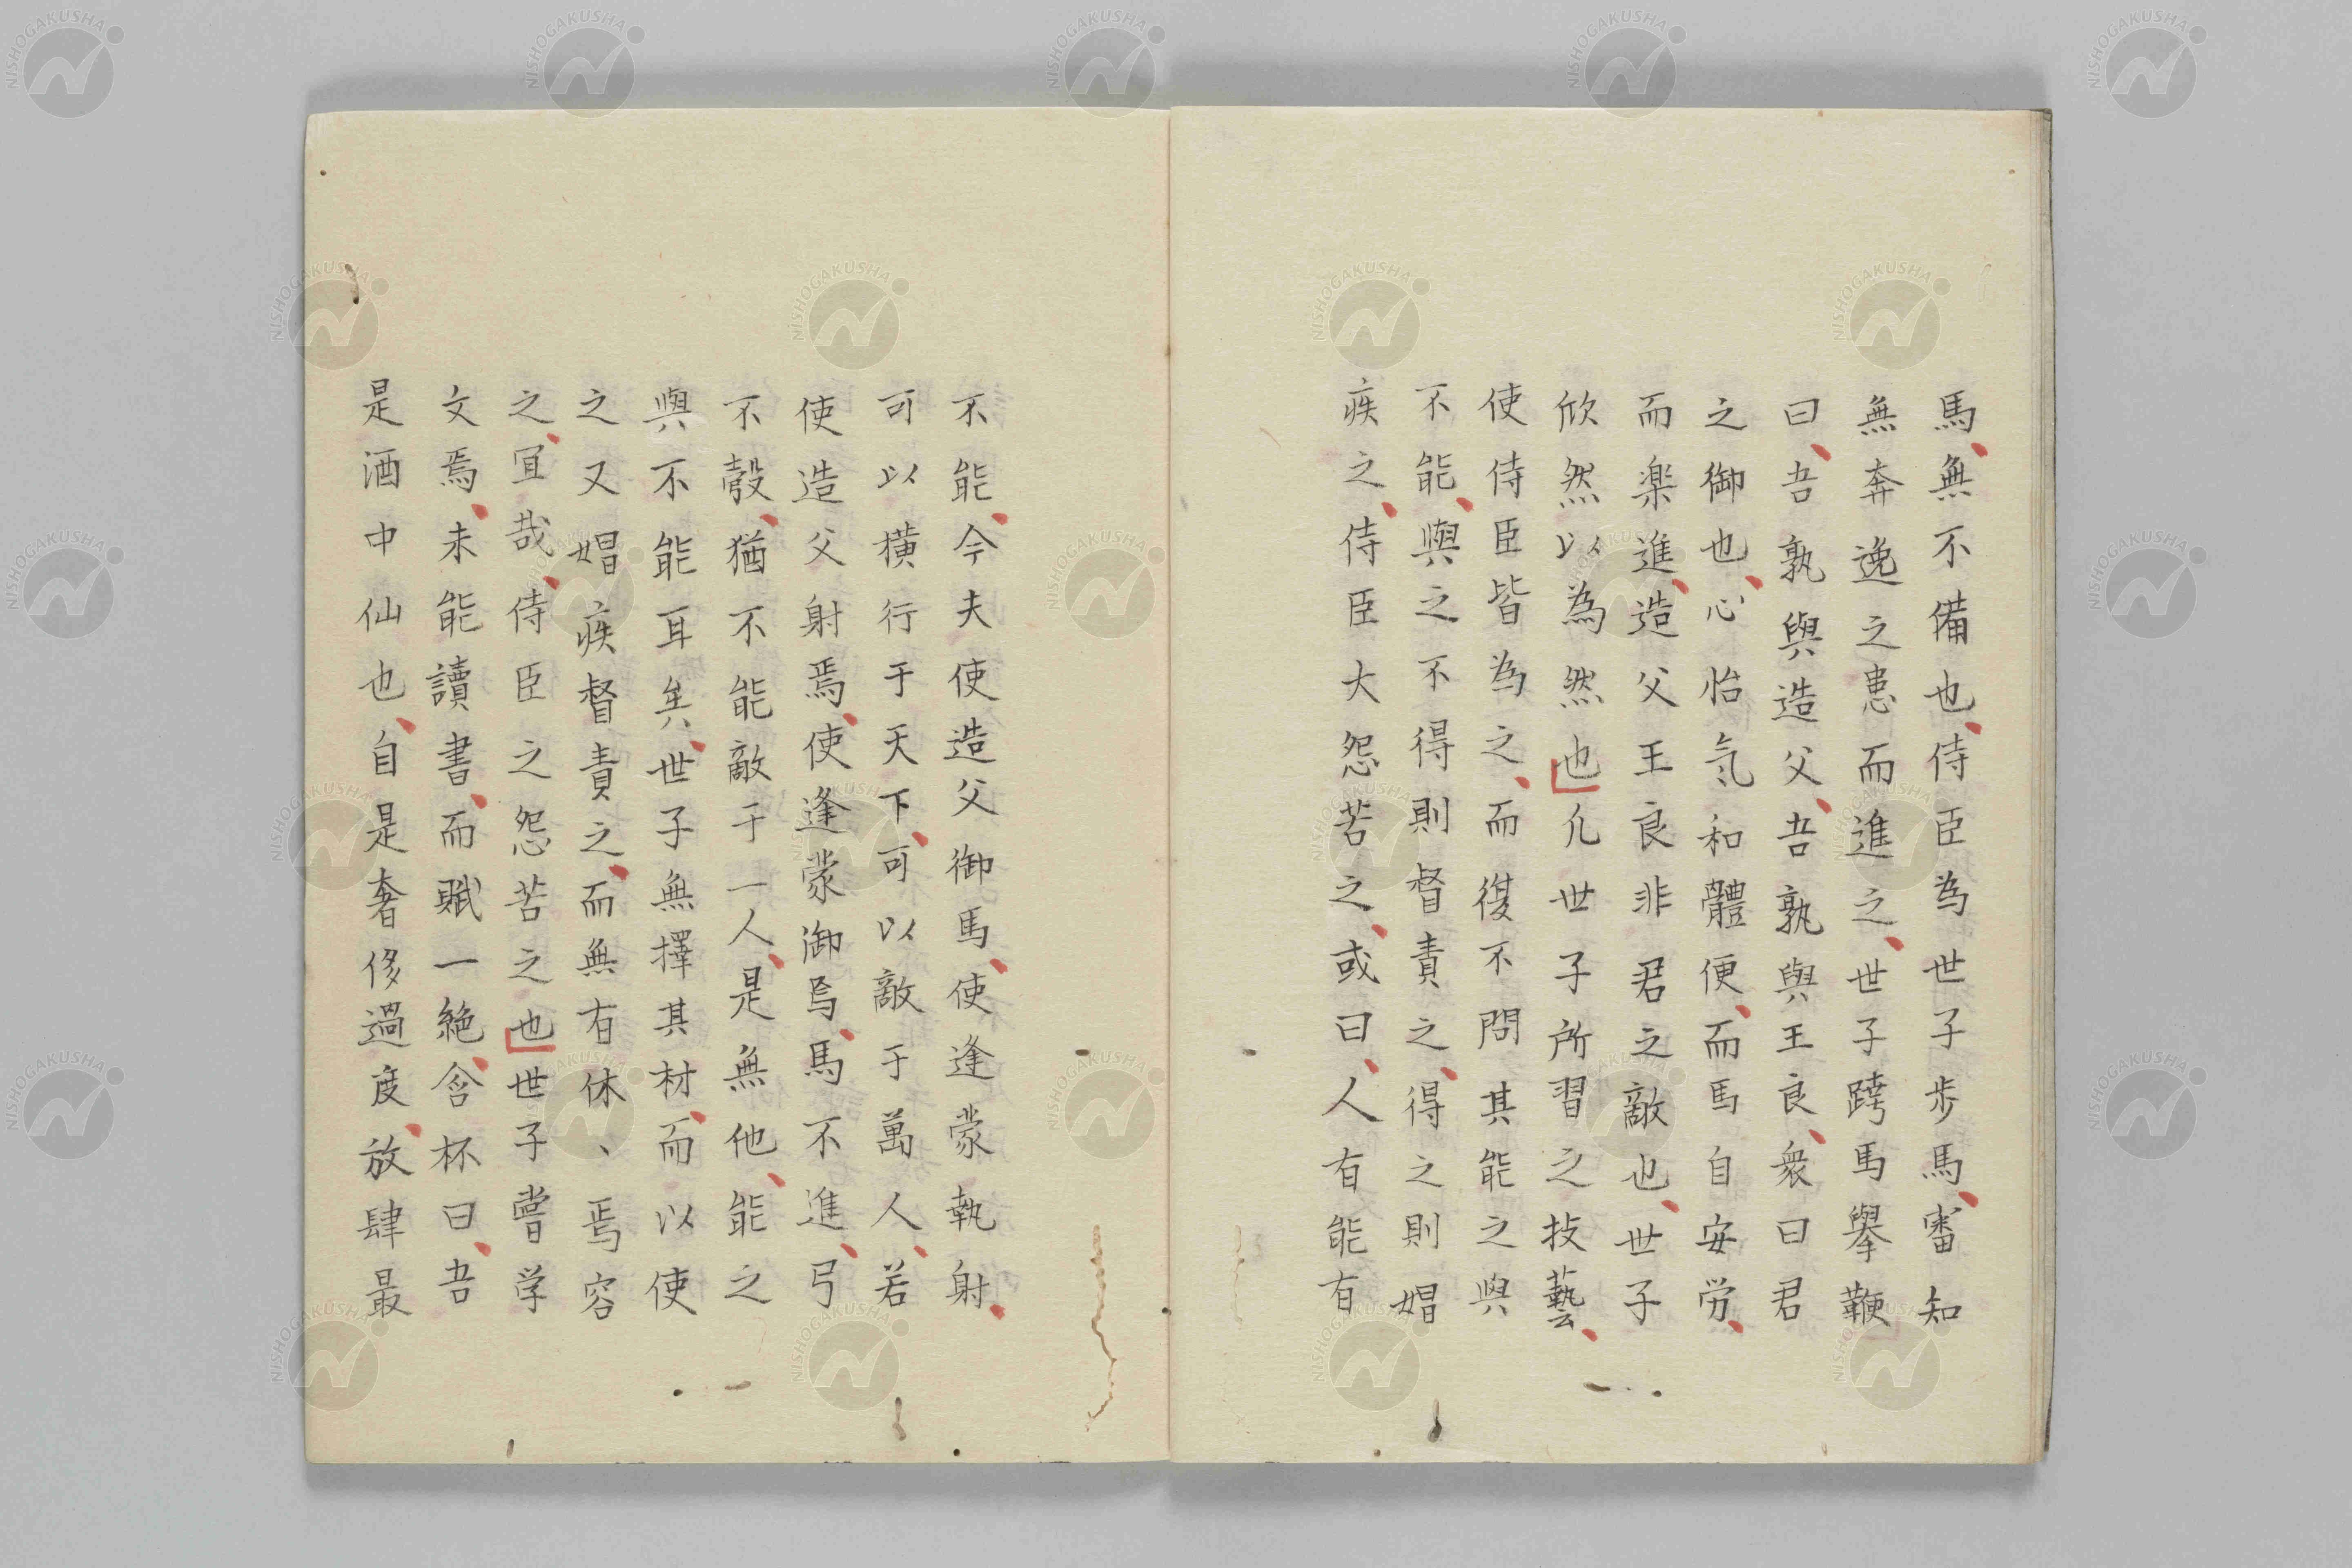 馬、無不備也、侍臣為世子歩馬、審知
無奔逸之患而進之、世子跨馬擧鞭
曰、吾孰與造父、吾孰與王良、衆曰君
之御也、心怡気和體便、而馬自安労、
而楽進、造父王良非君之敵也、世子
欣然以為然也」凢世子所習之技藝、
使侍臣皆為之、而復不問其能之與
不能、與之不得則督責之、得之則娼
疾之、侍臣大怨苦之、或曰、人有能有
不能、今夫使造父御馬、使逢蒙執射、
可以横行于天下、可以敵于萬人、若
使造父射焉、使逢蒙御焉、馬不進、弓
不彀、猶不能敵于一人、是無他、能之
與不能耳矣、世子無擇其材、而以使
之又娼疾督責之、而無有休、焉容
之、宜哉、侍臣之怨苦之也」世子嘗学
文焉、未能讀書、而賦一絶、含杯曰、吾
是酒中仙也、自是奢侈過度、放肆最
NISHOGAKUSHA